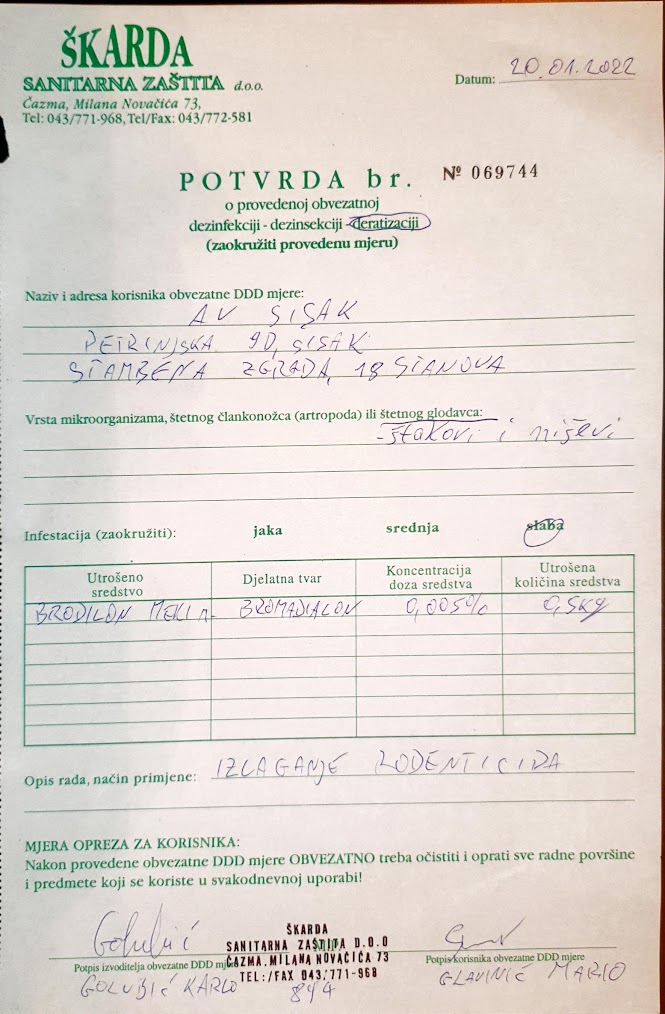 ŠKARDA
SANITARNA ZAŠTITA d.o.o.
Čazma, Milana Novačića 73,
Tel: 043/771-968, Tel/Fax: 043/772-581
Datum: 20.01.2022
POTVRDA br. Nº 069744
o provedenoj obvezatnoj
dezinfekciji - dezinsekciji - deratizaciji
(zaokružiti provedenu mjeru)
Naziv i adresa korisnika obvezatne DDD mjere:
AV SISAK
PETRINJSKA 9D, SISAK
STAMBENA ZGRADA, 18 STANOVA
Vrsta mikroorganizama, štetnog člankonožca (artropoda) ili štetnog glodavca:
- štakori i miševi
Infestacija (zaokružiti): jaka srednja slaba
Utrošeno sredstvo Djelatna tvar Koncentracija doza sredstva Utrošena količina sredstva
BRODILON MEKI BROMADIALON 0,005% 0,5kg
Opis rada, način primjene: IZLAGANJE RODENTICIDA
MJERA OPREZA ZA KORISNIKA:
Nakon provedene obvezatne DDD mjere OBVEZATNO treba očistiti i oprati sve radne površine
i predmete koji se koriste u svakodnevnoj uporabi!
Golubić
ŠKARDA
SANITARNA ZAŠTITA D.O.O
ČAZMA, MILANA NOVAČIĆA 73
TEL:/FAX 043/771-968
Potpis izvoditelja obvezatne DDD mjere Potpis korisnika obvezatne DDD mjere
GOLUBIĆ KARLO 894 GLAVINIĆ MARIO